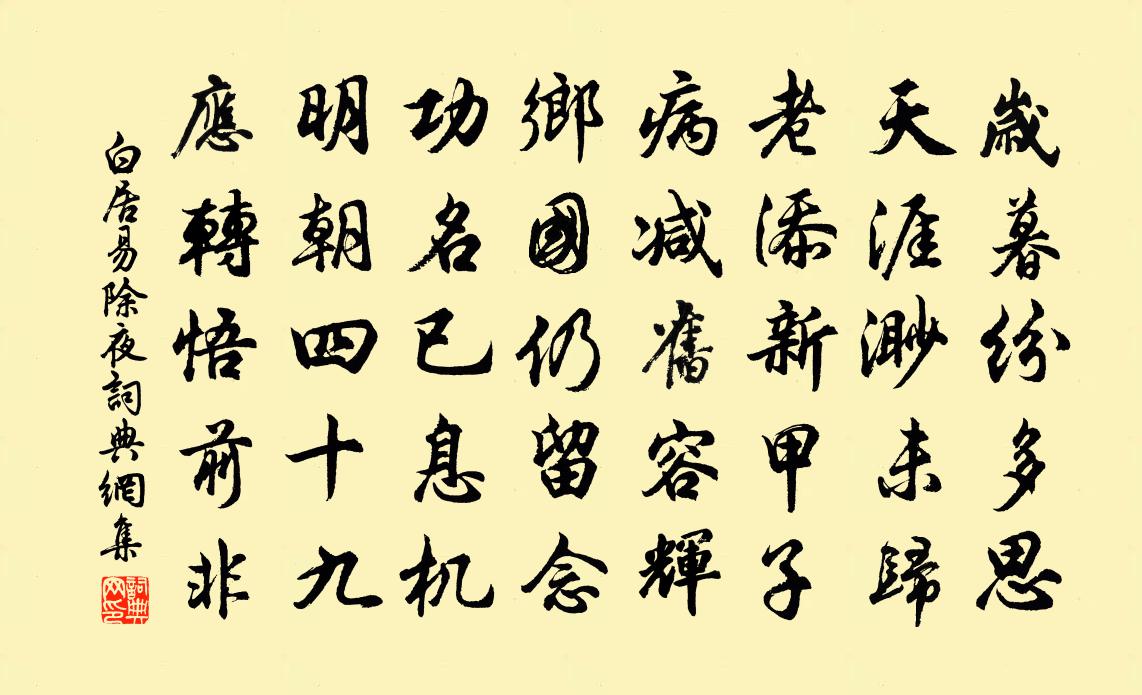 歲暮紛多思
天涯渺未歸
老添新甲子
病減舊容輝
鄉國仍留念
功名已息机
明朝四十九
應轉悟前非
白居易除夜詞典網集
詞典網印